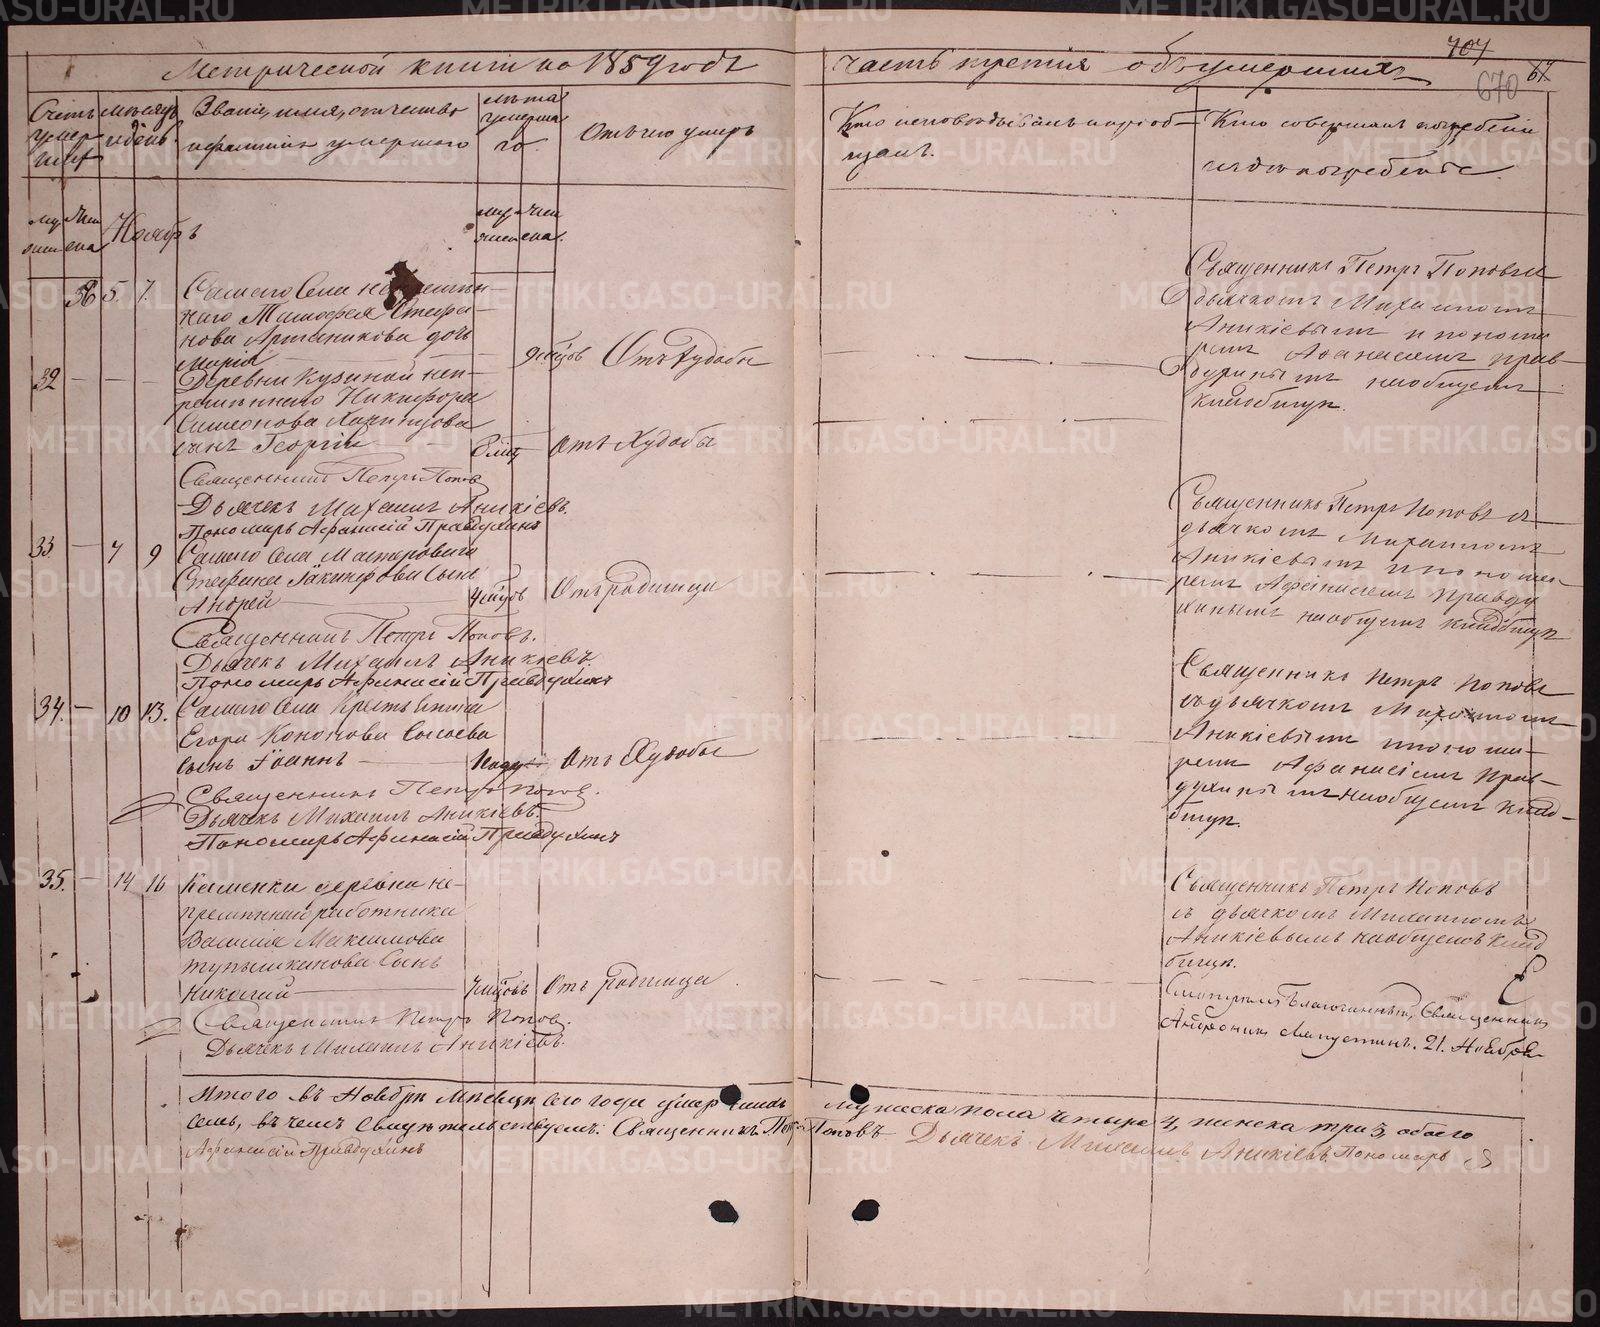 Метрической книги на 1859 годъ
Часть третія объ умершихъ
707
670
67
Счетъ умершихъ
Мѣсяцъ и день.
Званіе, имя, отчество
и фамилія умершаго
Лѣта умершаго.
Отъ чего умеръ
Кто исповѣдывалъ и пріобщалъ.
Кто совершалъ погребеніе
и гдѣ погребенъ.
мужеска
женска
Ноябрь
мужеска
женска.
36 5. 7.
Самаго Села
Тимофея Стефа-
нова дочь
Марія
9 мѣсцовъ
Отъ Худобы
Священникъ Петръ Поповъ съ
дьячкомъ Михаиломъ
Аникіевымъ и понома-
ремъ Афанасіемъ Прав-
духинымъ на общемъ
кладбищѣ.
32 — — —
Деревни Кузиной неп-
ремѣннаго Никифора
Симеонова
сынъ Георгій
Отъ Худобы
Священникъ Петръ Поповъ
Дьячекъ Михаилъ Аникіевъ.
Пономарь Афанасій Правдухинъ
33 — 7 9
Самаго Села Мастероваго
Стефана Іакинфова Сынъ
Андрей
4 мѣсцовъ
Отъ родимца
Священникъ Петръ Поповъ съ
дьячкомъ Михаиломъ
Аникіевымъ и понома-
ремъ Афанасіемъ Правду
хинымъ на общемъ кладбищѣ
Священникъ Петръ Поповъ.
Дьячекъ Михаилъ Аникіевъ.
Пономарь Афанасій Правдухинъ
34. — 10 13.
Самаго Села
Егора Кононова Сысоева
Сынъ Іоаннъ
Отъ Худобы
Священникъ Петръ Поповъ
съ дьячкомъ Михаиломъ
Аникіевымъ и понома-
ремъ Афанасіемъ Прав-
духинымъ на общемъ клад-
бищѣ.
Священникъ Петръ Поповъ.
Дьячекъ Михаилъ Аникіевъ.
Пономарь Афанасій Правдухинъ
35. — 14 16
Каменки деревни не-
премѣннаго работника
Василія Максимова
Сынъ
Николай
7 мѣсцовъ
Отъ родимца
Священникъ Петръ Поповъ
съ дьячкомъ Михаиломъ
Аникіевымъ на общемъ клад
бищѣ.
Священникъ Петръ Поповъ.
Дьячекъ Михаилъ Аникіевъ.
Смотрѣлъ Благочинный, Священникъ
21. Ноября
Итого въ Ноябрѣ Мѣсяцѣ сего года умершихъ мужеска пола четыре 4, женска три 3, обоего
семь, въ чемъ Свидѣтельствуемъ: Священникъ Петръ Поповъ Дьячекъ Михаилъ Аникіевъ. Пономарь
Афанасій Правдухинъ
METRIKI.GASO-URAL.RU